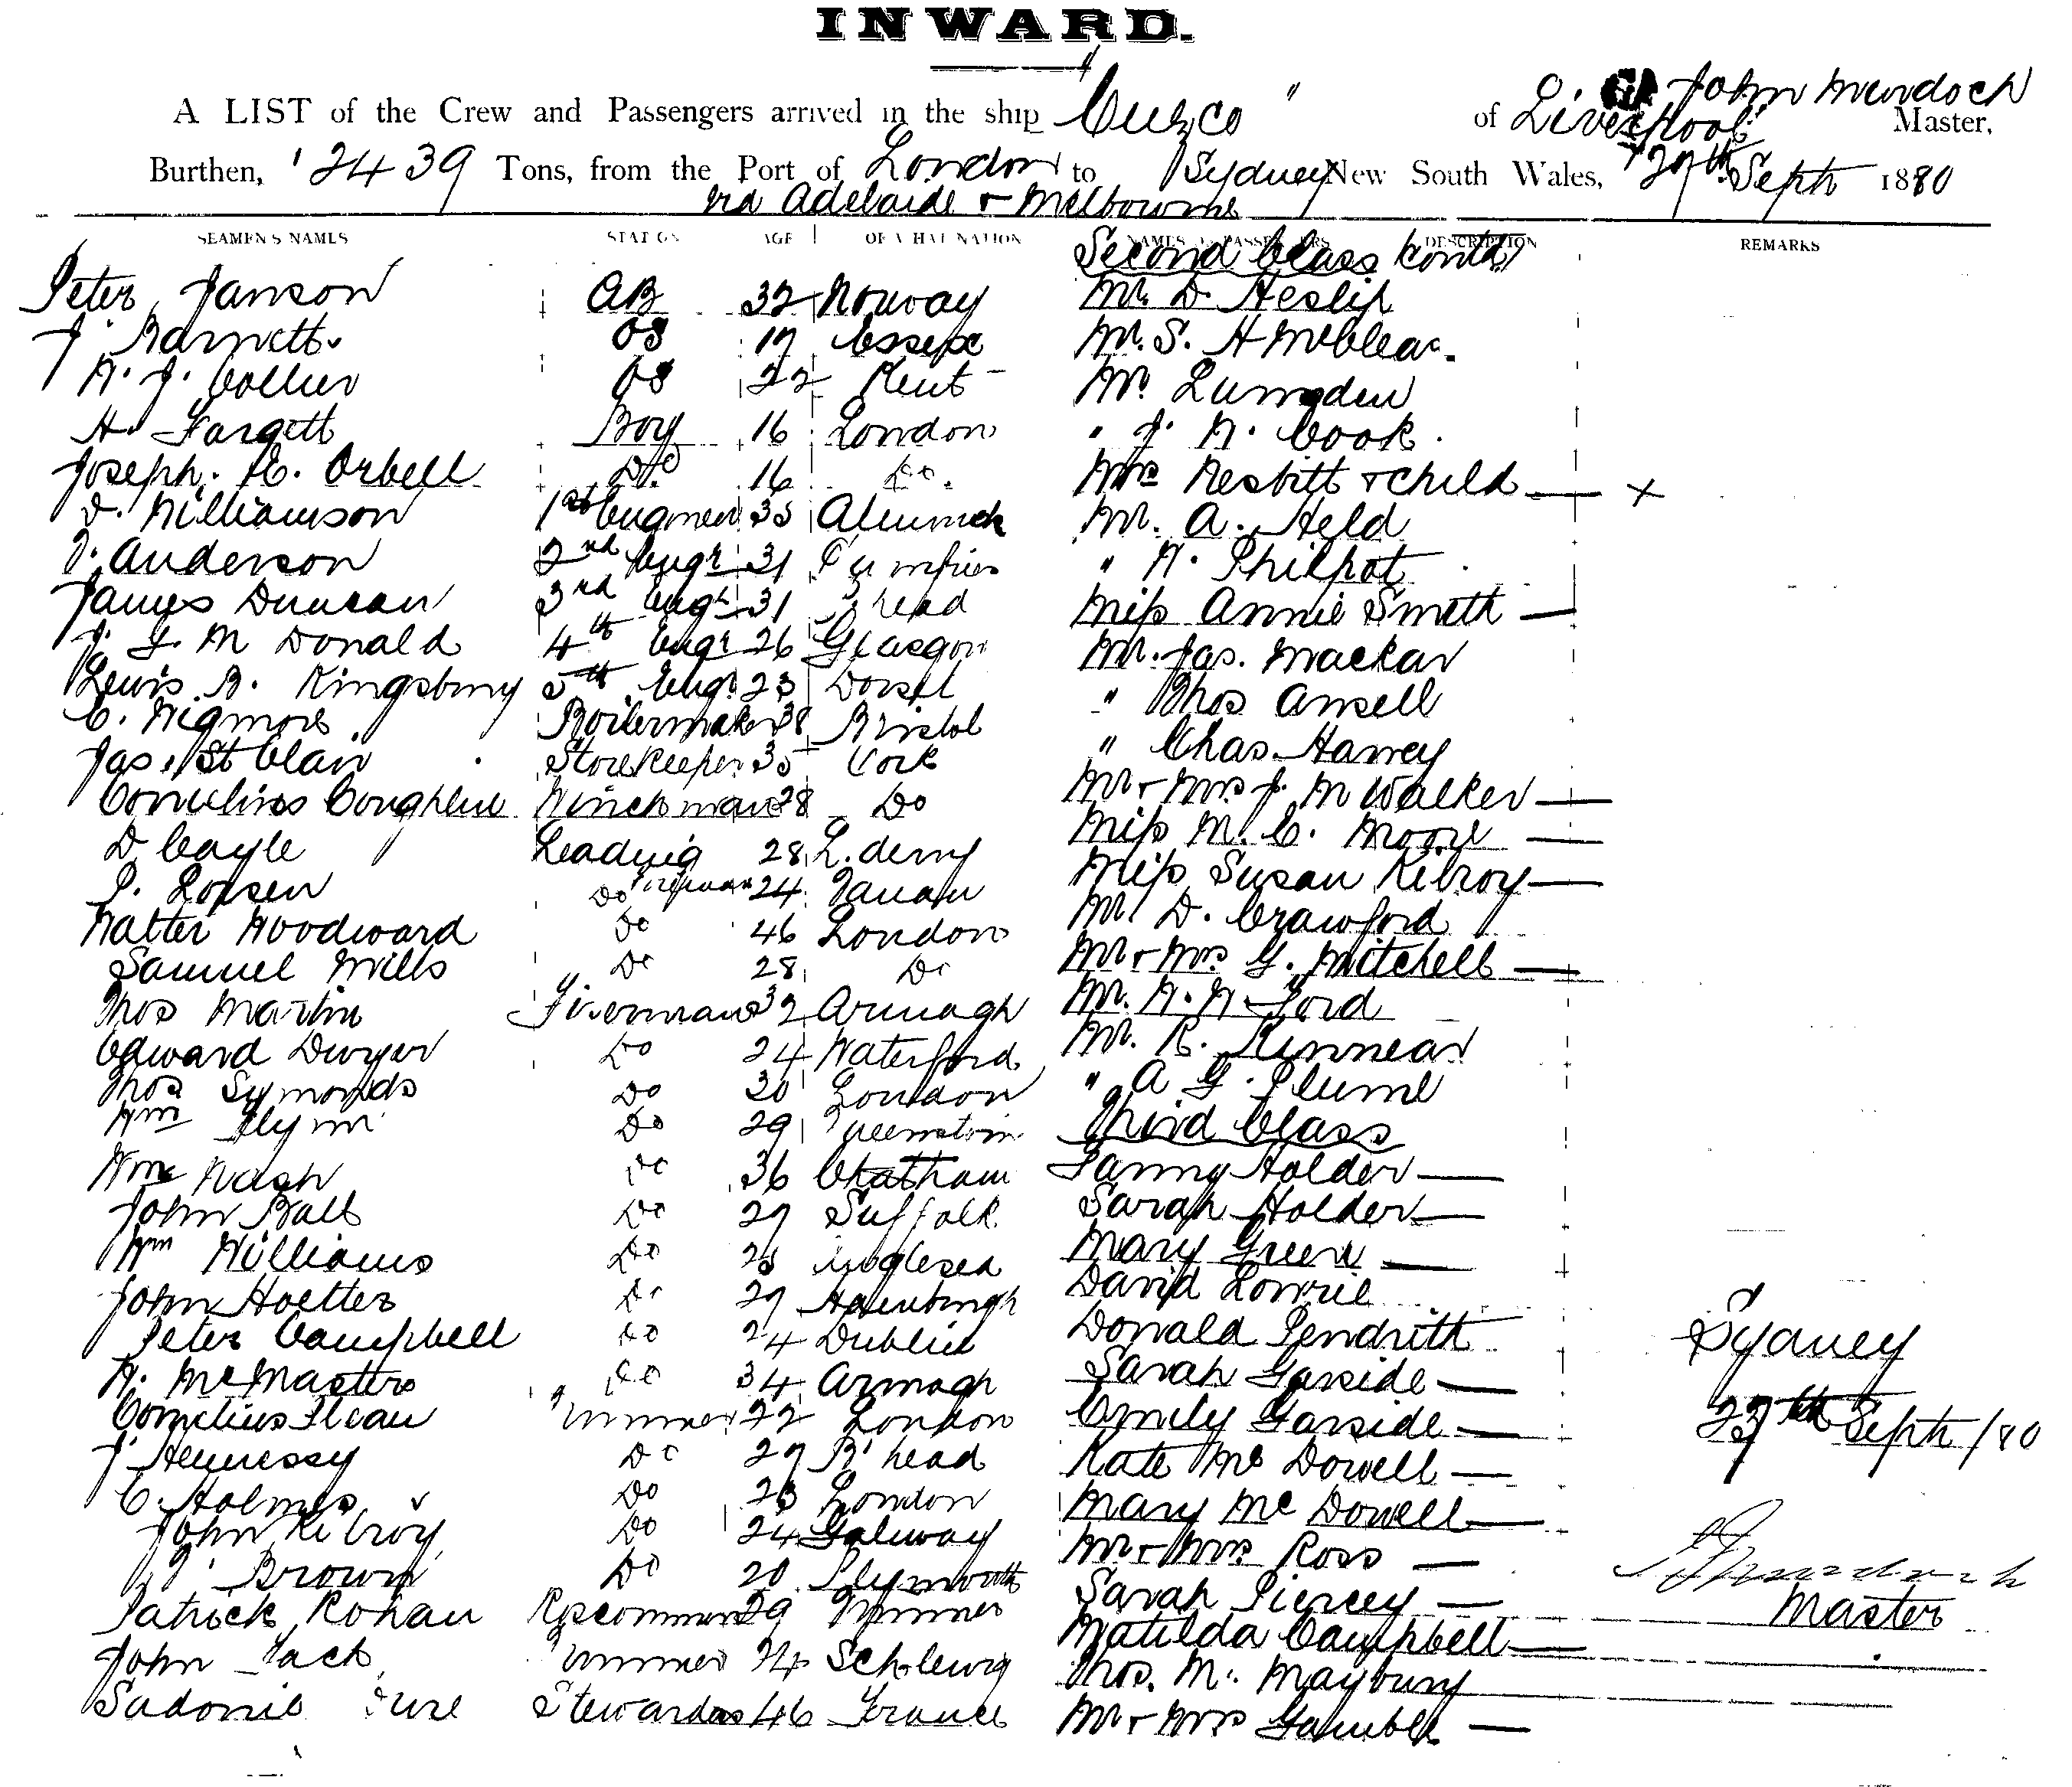 INWARD.
A LIST of the Crew and Passengers arrived in the ship "Cuzco" of Liverpool John Murdoch Master,
Burthen, 2439 Tons, from the Port of London to Sydney New South Wales, 27th Sept 1880
via Adelaide & Melbourne
SEAMEN'S NAMES STATION AGE OF WHAT NATION NAMES OF PASSENGERS DESCRIPTION REMARKS
Second Class Contd
Peter Janson AB 32 Norway Mr. D. Heslip
J Barnett OS 17 Essex Mr. S. H
W. J. Collier OS 22 Kent Mr. Lumsden
H. Fargett Boy 16 London " J. W. Cook
Joseph. H. Orbell Do 16 Do. Mrs Nesbitt & Child — x
D. Williamson 1st Engineer 35 Alnwick Mr. A. Held
Anderson 2nd Engr 31 Dumfries " W. Philpot
James Duncan 3rd Engr 31 head Miss Annie Smith —
J. G. M Donald 4th Engr 26 Glasgow Mr. Jas. Mackay
Lewis B. Kingsbury 5th Engr. 23 Dorset " Thos Ansell
C. Wigmore Boilermaker 38 Bristol " Chas. Harvey
Jas. St Clair Storekeeper 35 Cork Mr & Mrs J. M Walker —
Cornelius Coughlin Winchman 28 Do Miss M. C. Moore —
D Cayle Leading 28 L. derry Miss Susan Kilroy —
P. Do Fireman 24 Mr D. Crawford
Walter Woodward Do 46 London Mr & Mrs G. Mitchell —
Samuel Mills Do 28 Do Mr. W. W Ford
Thos Martin Fireman 32 Armagh Mr. R. Kinnear
Edward Dwyer Do 24 Waterford " A G. Plume
Thos Symonds Do 30 London Third Class
Wm Flynn Do 29 Queenstown
Wm Nash Do 36 Chatham Fanny Holder —
John Ball Do 27 Suffolk Sarah Holder —
Wm Williams Do Anglesea Mary Green —
John Do 27 David Lowrie
Peter Campbell Do 24 Dublin Donald Pendritt
W. McMaster Do 34 Armagh Sarah Garside —
Cornelius Trimmer 22 London Emily Garside —
J Hennessy Do 27 B' head Kate Mc Dowell —
C. Holmes Do London Mary Mc Dowell —
John Kilroy Do 24 Galway Mr & Mrs Ross —
Brown Do 20 Plymouth Sarah Piercey —
Patrick Rohan Roscommon 29 Trimmer Matilda Campbell —
John Trimmer 24 Schleswig Thos. M. Maybury
Stewardess 46 France Mr & Mrs Gamble —
Sydney
27th Sept /80
J Murdoch
Master